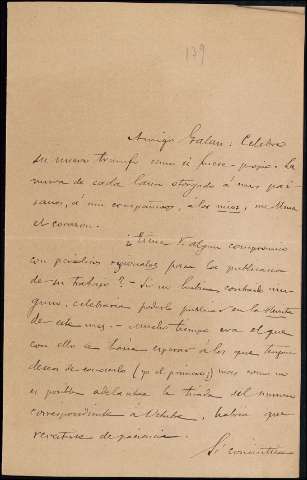 139
Amigo Galan: Celebro
su nuevo triunfo como si fuese propio. La
nueva de cada lauro otorgado á mis pai-
sanos, á mis compañeros, á los mios, me llena
el corazon.
¿Tiene V. algun compromiso
con periódicos regionales para la publicacion
de su trabajo? - Si no hubiese contraido nin-
guno, celebraria poderlo publicar en la Revista
de este mes. - Mucho tiempo era el que
con ello se haria esperar á los que tenemos
deseo de conocerlo (yo el primero); mas como no
es posible adelantar la tirada del numero
correspondiente á Octubre, habria que
revestirse de paciencia.
Si consintiera